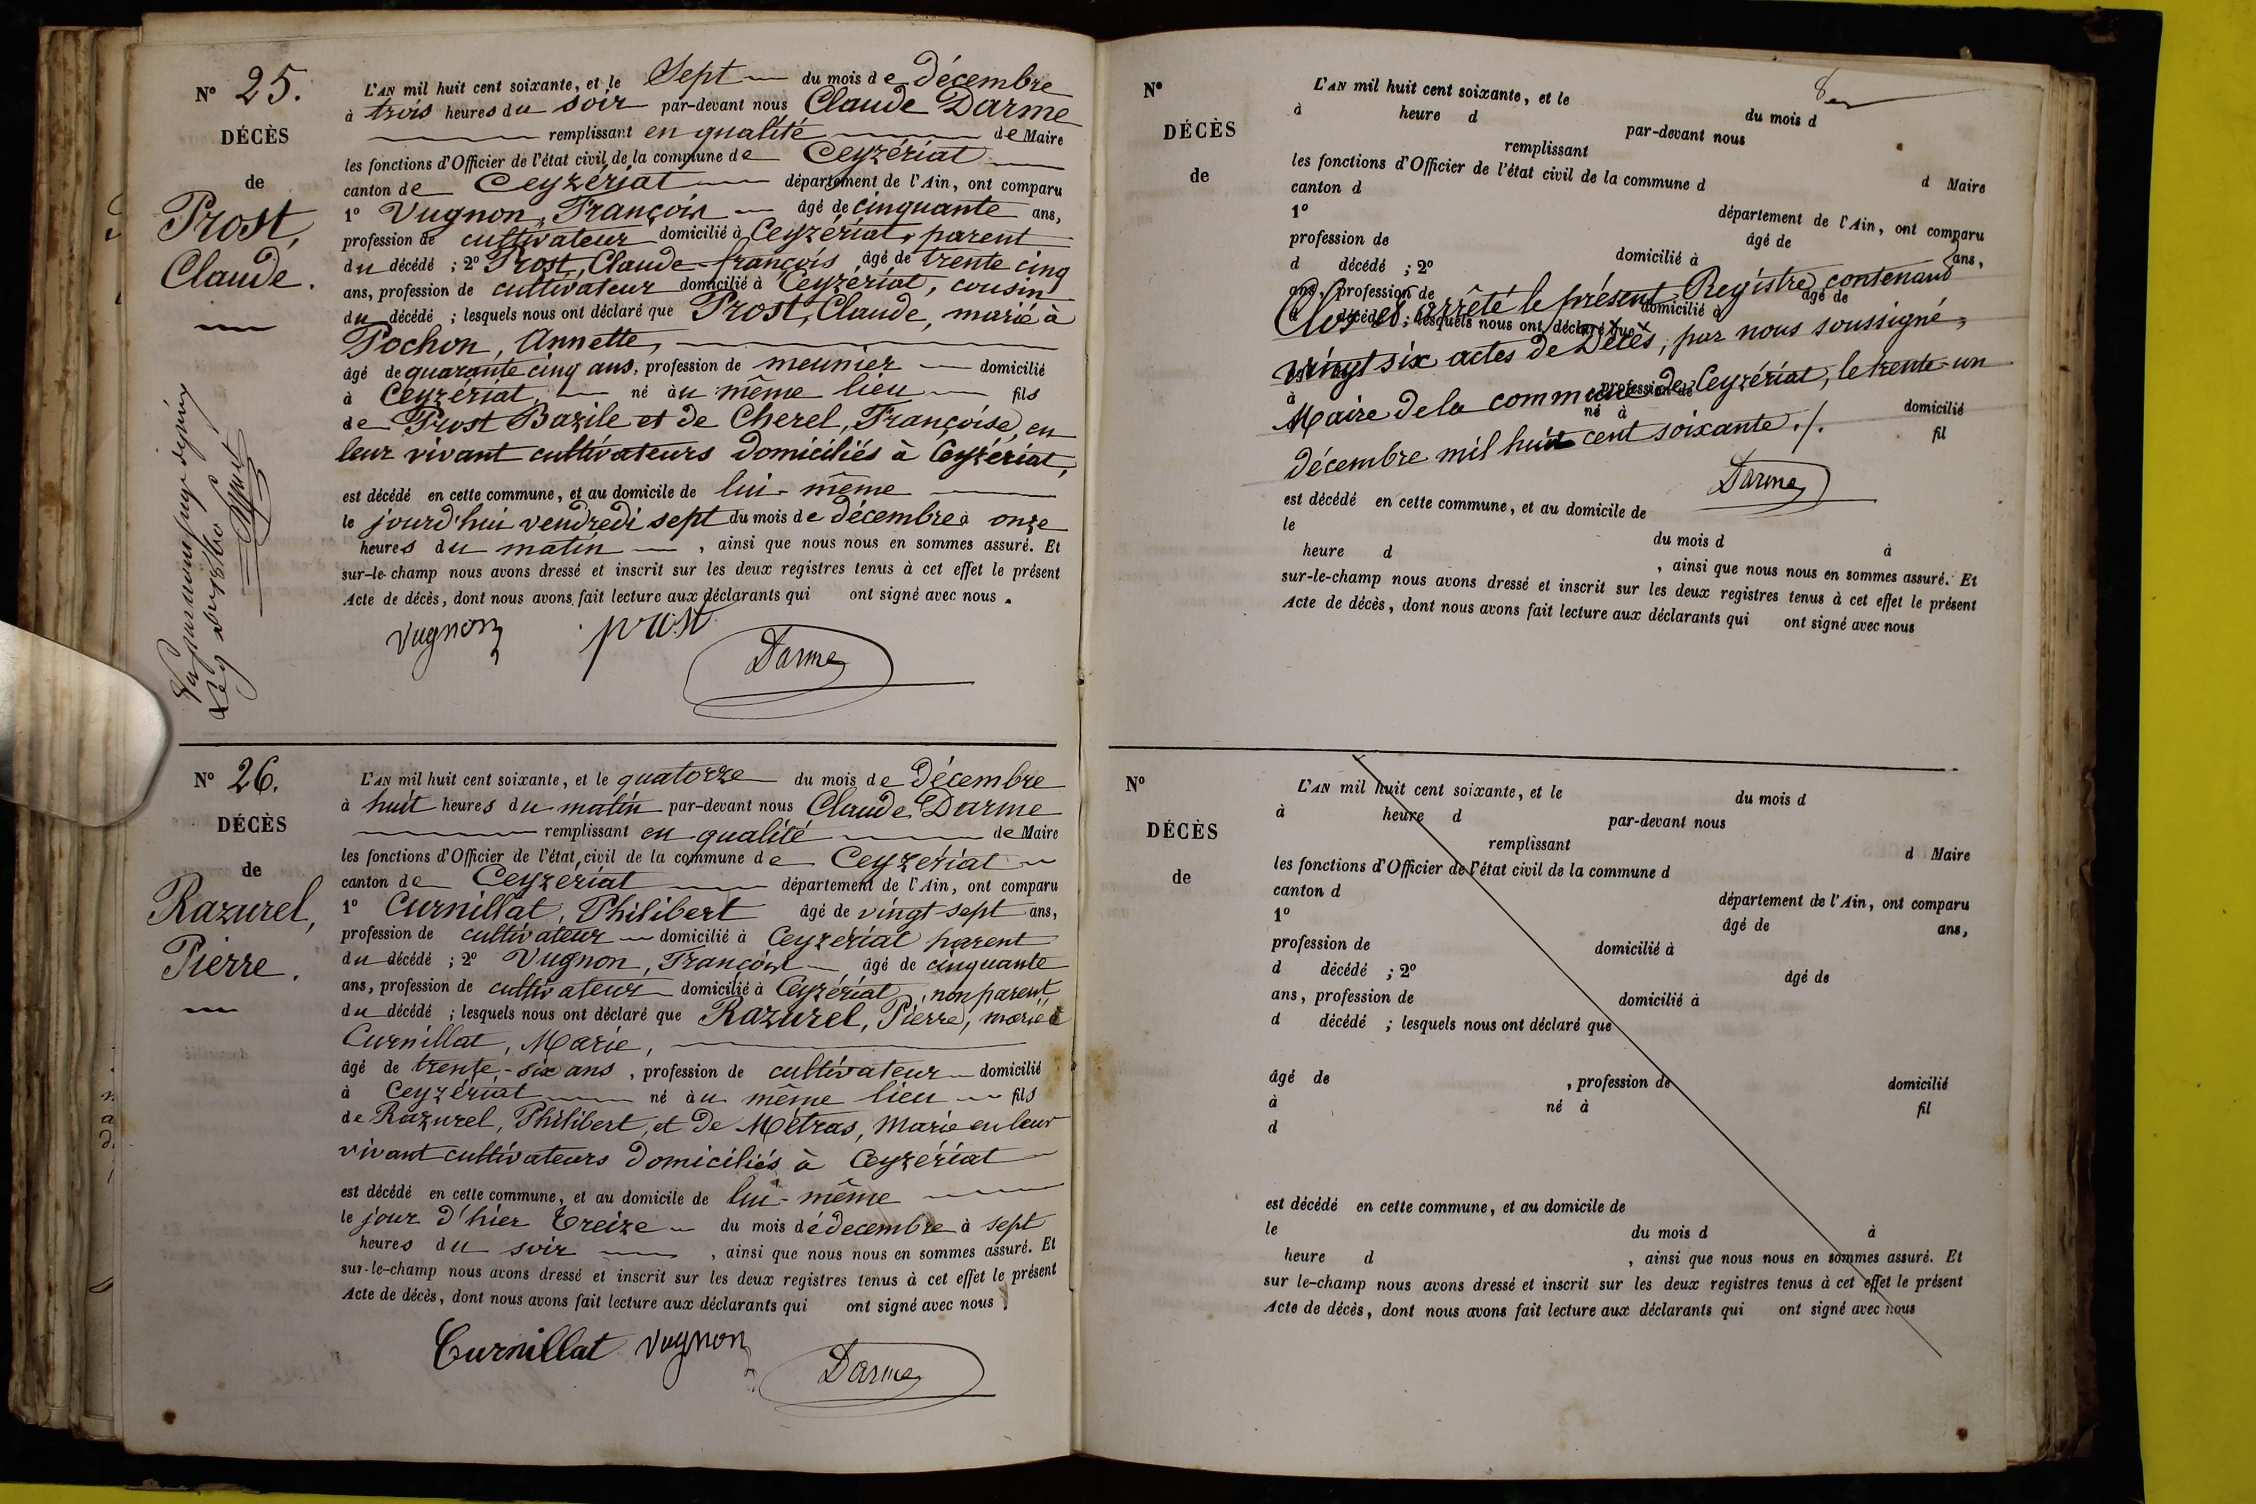 N° 25.
DÉCÈS
de
Prost,
Claude.
L'AN mil huit cent soixante, et le Sept du mois de décembre
à trois heures du soir par-devant nous Claude Darme
remplissant en qualité de Maire
les fonctions d'Officier de l'état civil de la commune de Ceyzériat
canton de Ceyzériat département de l'Ain, ont comparu
1° Vugnon, François âgé de cinquante ans,
profession de cultivateur domicilié à Ceyzériat, parent
du décédé ; 2° Prost, Claude-françois âgé de trente cinq
ans, profession de cultivateur domicilié à Ceyzériat, cousin
du décédé ; lesquels nous ont déclaré que Prost, Claude, marié à
Pochon, Annette,
âgé de quarante cinq ans, profession de meunier domicilié
à Ceyzériat, né au même lieu fils
de Prost Bazile et de Cherel, Françoise, en
leur vivant cultivateurs domiciliés à Ceyzériat,
est décédé en cette commune, et au domicile de lui-même
le jourd'hui vendredi sept du mois de décembre à onze
heures du matin , ainsi que nous nous en sommes assuré. Et
sur-le-champ nous avons dressé et inscrit sur les deux registres tenus à cet effet le présent
Acte de décès, dont nous avons fait lecture aux déclarants qui ont signé avec nous.
Vugnon prost
Darme
N° 26.
DÉCÈS
de
Razurel,
Pierre.
L'AN mil huit cent soixante, et le quatorze du mois de décembre
à huit heures du matin par-devant nous Claude Darme
remplissant en qualité de Maire
les fonctions d'Officier de l'état civil de la commune de Ceyzériat
canton de Ceyzeriat département de l'Ain, ont comparu
1° Curnillat, Philibert âgé de vingt-sept ans,
profession de cultivateur domicilié à Ceyzériat parent
du décédé ; 2° Vugnon, François âgé de cinquante
ans, profession de cultivateur domicilié à Ceyzériat, non parent
du décédé ; lesquels nous ont déclaré que Razurel, Pierre, marié à
Curnillat, Marie,
âgé de trente-six ans, profession de cultivateur domicilié
à Ceyzériat né au même lieu fils
de Razurel, Philibert, et de Métras, Marie en leur
vivant cultivateurs domiciliés à Ceyzériat
est décédé en cette commune, et au domicile de lui-même
le jour d'hier treize du mois de decembre à sept
heures du soir , ainsi que nous nous en sommes assuré. Et
sur-le-champ nous avons dressé et inscrit sur les deux registres tenus à cet effet le présent
Acte de décès, dont nous avons fait lecture aux déclarants qui ont signé avec nous.
Curnillat Vugnon
Darme
N°
DÉCÈS
de
L'AN mil huit cent soixante, et le du mois d
à heure d par-devant nous
remplissant d Maire
les fonctions d'Officier de l'état civil de la commune d
canton d département de l'Ain, ont comparu
1° âgé de ans,
profession de domicilié à
d décédé ; 2° âgé de
ans, profession de domicilié à
d décédé ; lesquels nous ont déclaré que
Clos et arrêté le présent Registre contenant
vingt six actes de Décès, par nous soussigné,
Maire de la commune de Ceyzériat, le trente-un
décembre mil huit cent soixante ./.
Darme
profession de domicilié
à né à fil
est décédé en cette commune, et au domicile de
le du mois d à
heure d , ainsi que nous nous en sommes assuré. Et
sur-le-champ nous avons dressé et inscrit sur les deux registres tenus à cet effet le présent
Acte de décès, dont nous avons fait lecture aux déclarants qui ont signé avec nous
N°
DÉCÈS
de
L'AN mil huit cent soixante, et le du mois d
à heure d par-devant nous
remplissant d Maire
les fonctions d'Officier de l'état civil de la commune d
canton d département de l'Ain, ont comparu
1° âgé de ans,
profession de domicilié à
d décédé ; 2° âgé de
ans, profession de domicilié à
d décédé ; lesquels nous ont déclaré que
âgé de , profession de domicilié
à né à fil
d
est décédé en cette commune, et au domicile de
le du mois d à
heure d , ainsi que nous nous en sommes assuré. Et
sur le-champ nous avons dressé et inscrit sur les deux registres tenus à cet effet le présent
Acte de décès, dont nous avons fait lecture aux déclarants qui ont signé avec nous